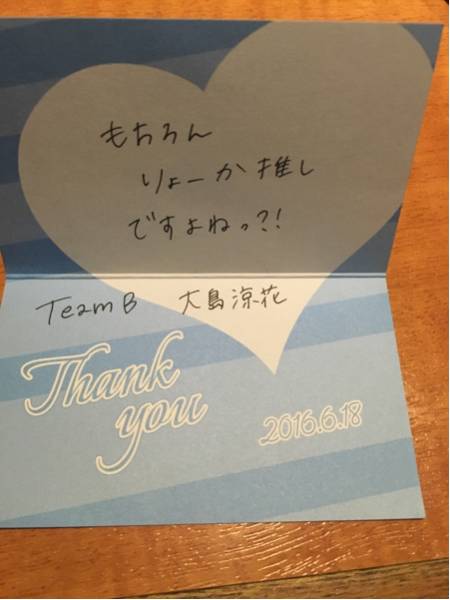 もちろん
りょーか推し
ですよねっ?!
Team B 大島涼花
Thank
you
2016.6.18